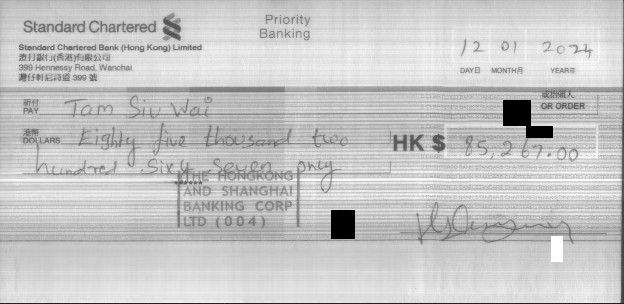 Standard Chartered
Priority
Banking
Standard Chartered Bank (Hong Kong) Limited
渣打銀行(香港)有限公司
399 Hennessy Road, Wanchai
灣仔軒尼詩道 399 號
12 01 2024
DAY日 MONTH月 YEAR年
祈付
PAY Tam Siu Wai
或持票人
OR ORDER
港幣
DOLLARS Eighty five thousand two
hundred Sixty Seven only
HK $ 85,267.00
THE HONGKONG
AND SHANGHAI
BANKING CORP
LTD (004)